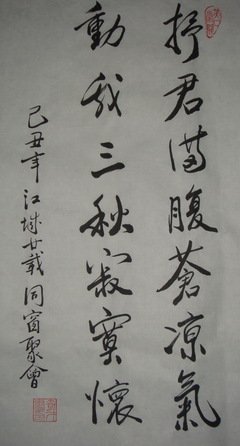 抒君满腹苍凉氣
動我三秋寂寞懷
己丑年江城廿载同窗聚會